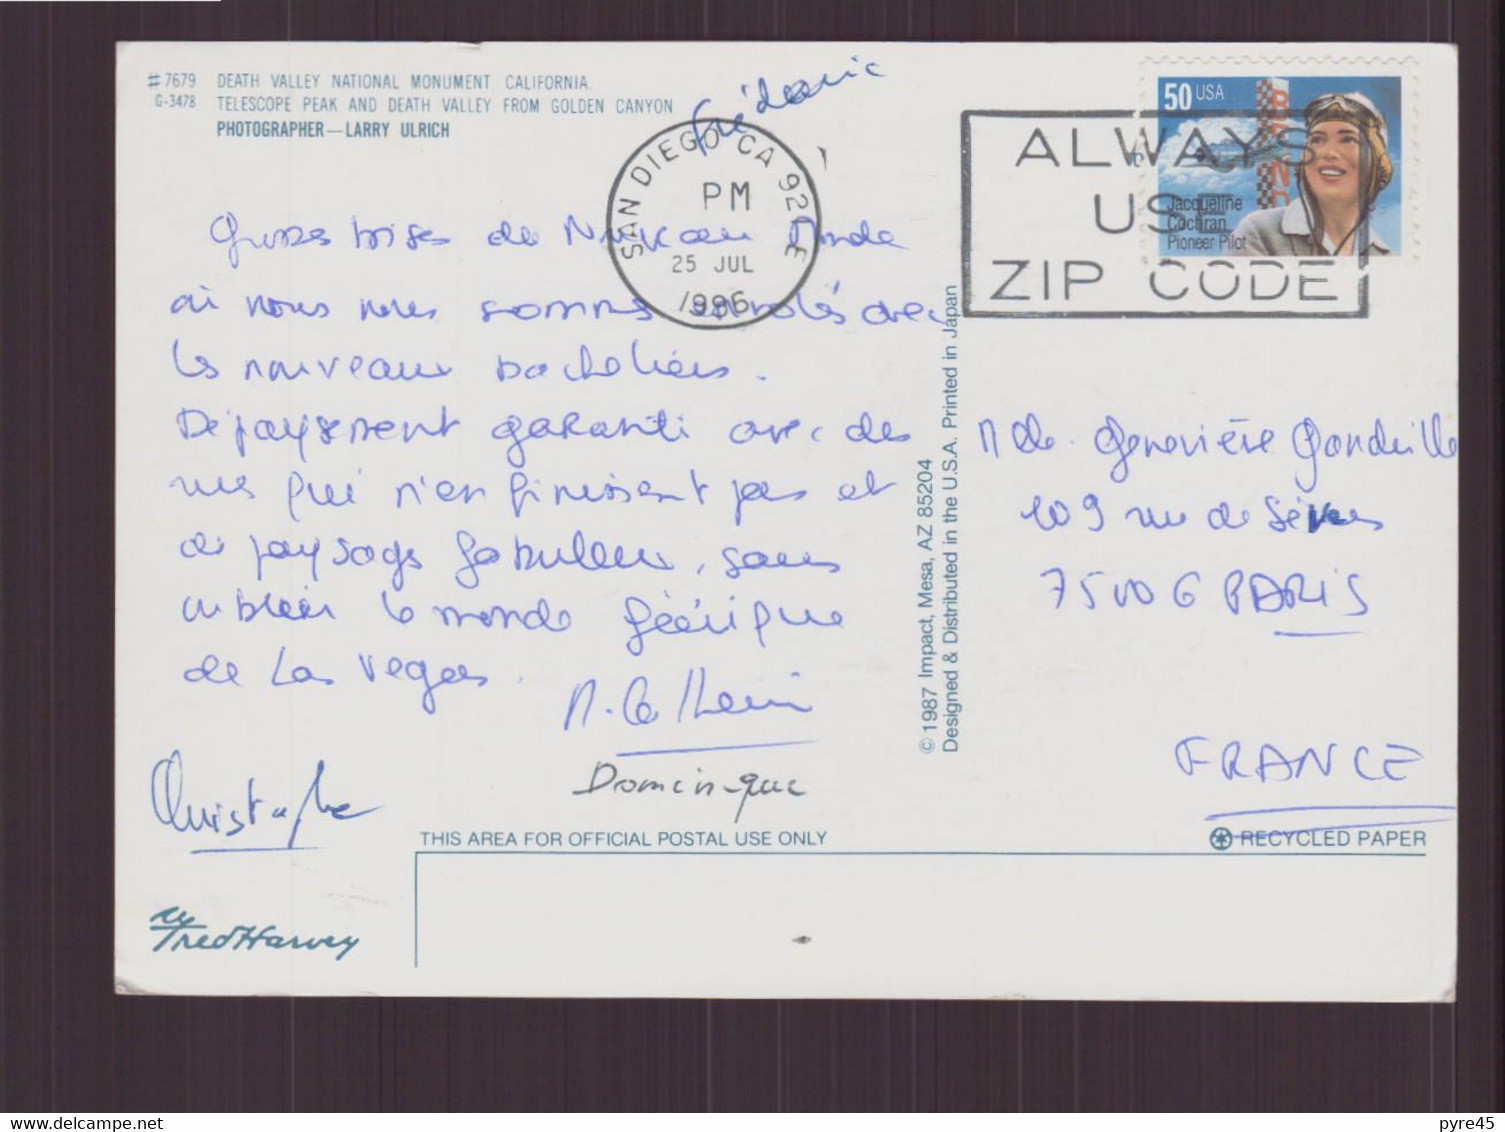 #7679 DEATH VALLEY NATIONAL MONUMENT, CALIFORNIA.
G-3478 TELESCOPE PEAK AND DEATH VALLEY FROM GOLDEN CANYON
PHOTOGRAPHER—LARRY ULRICH
Frédéric
SAN DIEGO CA 92
PM
25 JUL
1996
50 USA
Jacqueline
Cochran
Pioneer Pilot
ALWAYS
USE
ZIP CODE
Grosses bises du Nouveau Monde
où nous nous sommes envolés avec
les nouveaux bacheliers.
Dépaysement garanti avec des
rues qui n'en finissent pas et
des paysages fabuleux, sans
oublier le monde féérique
de Las Vegas.
Dominique
Christophe
© 1987 Impact, Mesa, AZ 85204
Designed & Distributed in the U.S.A. Printed in Japan
Melle Geneviève
109 rue de Sèvres
75006 PARIS
FRANCE
THIS AREA FOR OFFICIAL POSTAL USE ONLY
RECYCLED PAPER
Fred Harvey
delcampe.net
pyre45